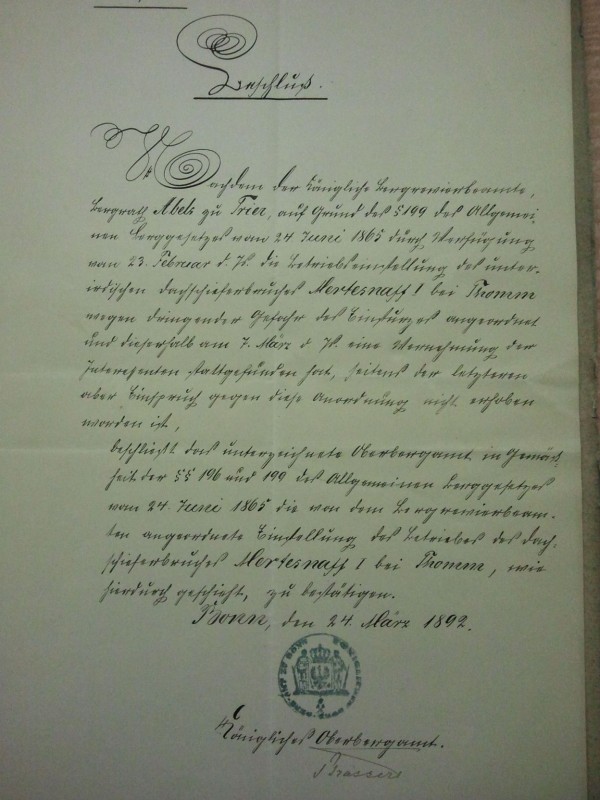 Beschluß.
Nachdem der Königliche Bergrevierbeamte,
Bergrath Abels zu Trier, auf Grund des § 199 des Allgemei-
nen Berggesetzes vom 24 Juni 1865 durch Verfügung
vom 23. Februar d. Js. die Betriebseinstellung des unter-
irdischen Dachschieferbruches Mertesnaff I bei Thomm
wegen dringender Gefahr des Einsturzes angeordnet
und dieserhalb am 7. März d. Js. eine Vernehmung der
Interessenten stattgefunden hat, seitens der letzteren
aber Einspruch gegen diese Anordnung nicht erhoben
worden ist,
beschließt das unterzeichnete Oberbergamt in Gemäß-
heit der §§ 196 und 199 des Allgemeinen Berggesetzes
vom 24. Juni 1865 die von dem Bergrevierbeam-
ten angeordnete Einstellung des Betriebes des Dach-
schieferbruches Mertesnaff I bei Thomm, wie
hierdurch geschieht, zu bestätigen.
Bonn, den 24. März 1892.
Königliches Oberbergamt.